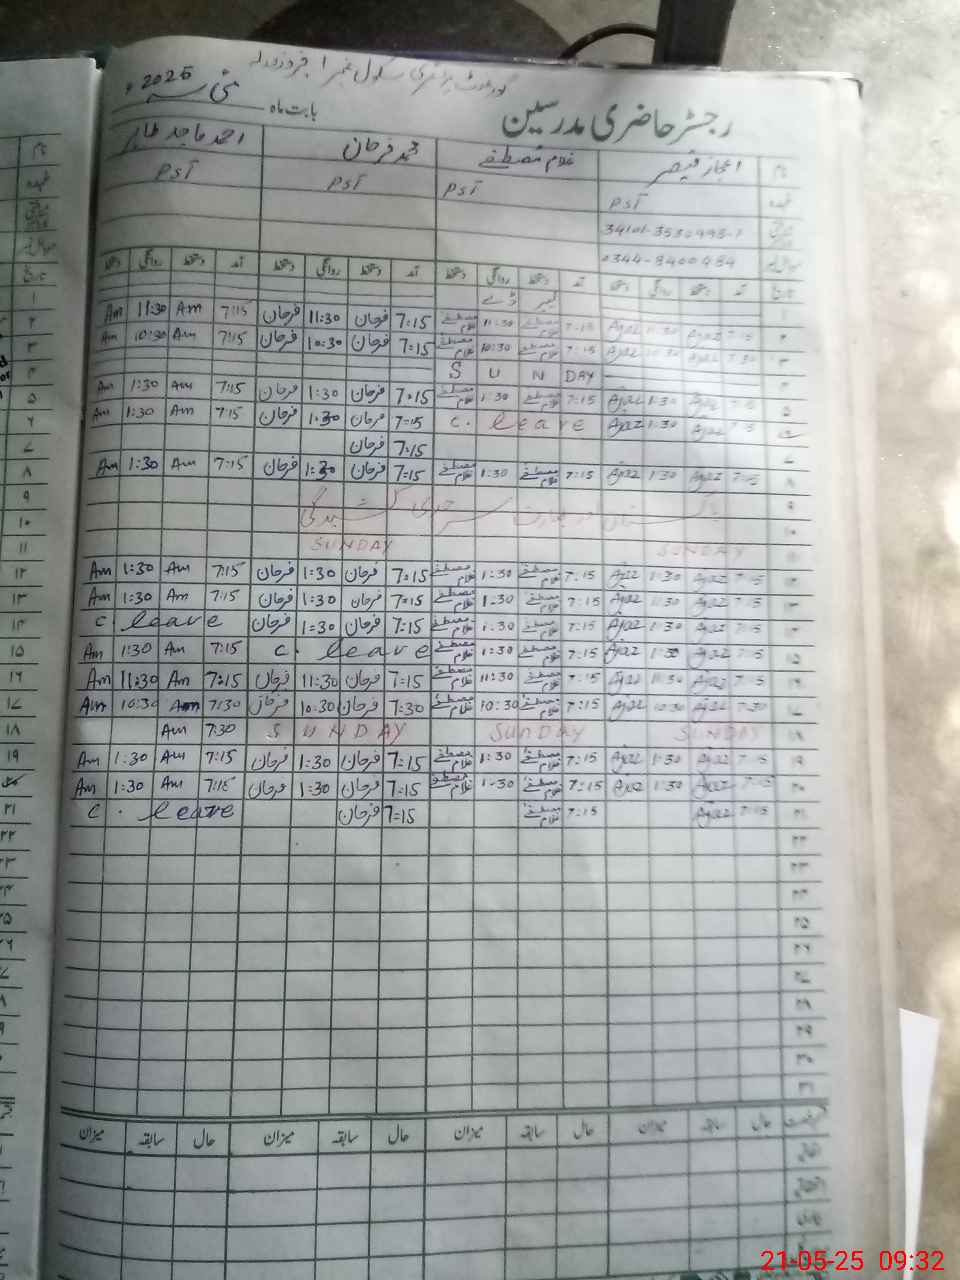 گورنمنٹ پرائمری سکول نمبر 1
رجسٹر حاضری مدرسین بابت ماہ مئی سنہ 2025ء
نام اعجاز قیصر غلام مصطفے محمد فرحان احمد ماجد
عہدہ PST PST PST PST
34101-3530493-7
0344-8400484
تاریخ آمد دستخط روانگی دستخط آمد دستخط روانگی دستخط آمد دستخط روانگی دستخط آمد دستخط روانگی دستخط
۱ لیبر ڈے
۲ 7:15 Ajaz 11:30 Ajaz 7:15 غلام مصطفے 11:30 غلام مصطفے 7:15 فرحان 11:30 فرحان 7:15 Am 11:30 Am
۳ 7:30 Ajaz 10:30 Ajaz 7:15 غلام مصطفے 10:30 غلام مصطفے 7:15 فرحان 10:30 فرحان 7:15 Am 10:30 Am
۴ S U N DAY
۵ 7:15 Ajaz 1:30 Ajaz 7:15 غلام مصطفے 1:30 غلام مصطفے 7:15 فرحان 1:30 فرحان 7:15 Am 1:30 Am
۶ 7:15 Ajaz 1:30 Ajaz C. leave 7:15 فرحان 1:30 فرحان 7:15 Am 1:30 Am
۷ 7:15 فرحان
۸ 7:15 Ajaz 1:30 Ajaz 7:15 غلام مصطفے 1:30 غلام مصطفے 7:15 فرحان 1:30 فرحان 7:15 Am 1:30 Am
۹ پاکستان بھارت سرحدی کشیدگی
۱۰
۱۱ SUNDAY SUNDAY
۱۲ 7:15 Ajaz 1:30 Ajaz 7:15 غلام مصطفے 1:30 غلام مصطفے 7:15 فرحان 1:30 فرحان 7:15 Am 1:30 Am
۱۳ 7:15 Ajaz 1:30 Ajaz 7:15 غلام مصطفے 1:30 غلام مصطفے 7:15 فرحان 1:30 فرحان 7:15 Am 1:30 Am
۱۴ 7:15 Ajaz 1:30 Ajaz 7:15 غلام مصطفے 1:30 غلام مصطفے 7:15 فرحان 1:30 فرحان C. leave
۱۵ 7:15 Ajaz 1:30 Ajaz 7:15 غلام مصطفے 1:30 غلام مصطفے C. leave 7:15 Am 1:30 Am
۱۶ 7:15 Ajaz 11:30 Ajaz 7:15 غلام مصطفے 11:30 غلام مصطفے 7:15 فرحان 11:30 فرحان 7:15 Am 11:30 Am
۱۷ 7:30 Ajaz 10:30 Ajaz 7:15 غلام مصطفے 10:30 غلام مصطفے 7:30 فرحان 10:30 فرحان 7:30 Am 10:30 Am
۱۸ SUNDAY SUNDAY S U N D A Y 7:30 Am
۱۹ 7:15 Ajaz 1:30 Ajaz 7:15 غلام مصطفے 1:30 غلام مصطفے 7:15 فرحان 1:30 فرحان 7:15 Am 1:30 Am
۲۰ 7:15 Ajaz 1:30 Ajaz 7:15 غلام مصطفے 1:30 غلام مصطفے 7:15 فرحان 1:30 فرحان 7:15 Am 1:30 Am
۲۱ 7:15 Ajaz 7:15 غلام مصطفے 7:15 فرحان C. leave
۲۲
۲۳
۲۴
۲۵
۲۶
۲۷
۲۸
۲۹
۳۰
۳۱
حال سابقہ میزان حال سابقہ میزان حال سابقہ میزان حال سابقہ میزان
21-05-25 09:32